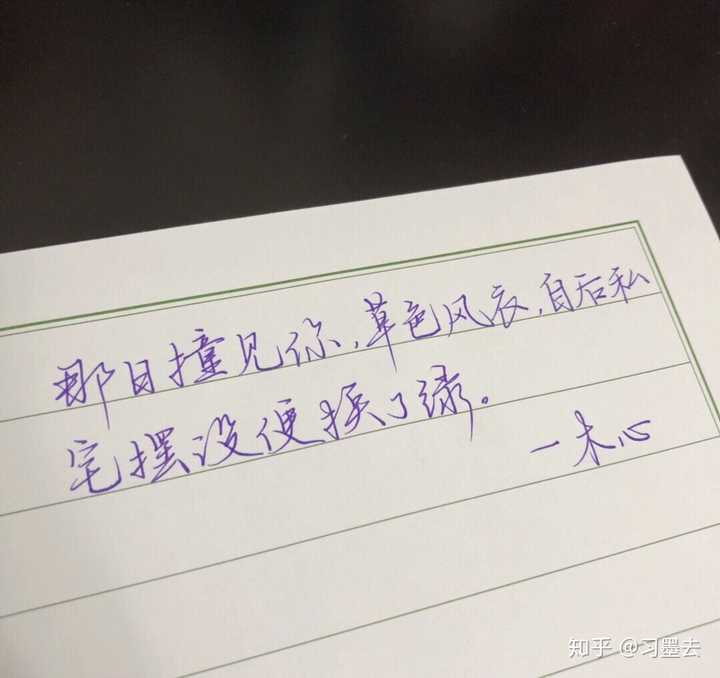 那日撞见你,草色风衣,自后私
宅摆设便换了绿。
—木心
知乎 @习墨去